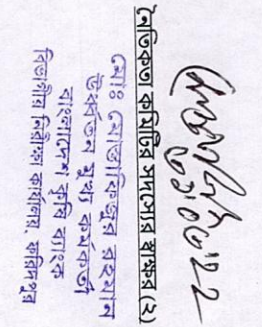 ২১.০৬.২২
নৈতিকতা কমিটির সদস্যের স্বাক্ষর (২)
মোঃ মোস্তাফিজুর রহমান
উধ্বর্তন মুখ্য কর্মকর্তা
বাংলাদেশ কৃষি ব্যাংক
বিভাগীয় নিরীক্ষা কার্যালয়, ফরিদপুর